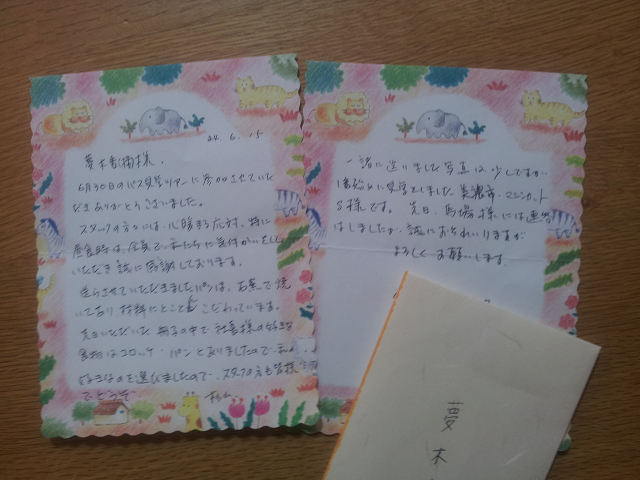 24.6.15
夢木香(株)様、
6月3日のバス見学ツアーに参加させていた
だきありがとうございました。
スタッフの方々には、心暖まる応対、特に
昼食時は、全員で私たちに気付かいをして
いただき 誠に感謝しております。
送らせていただきましたパンは、石窯で焼
いており 材料にとことん こだわっています。
先日いただいた 冊子の中で 社長様の好きな
食物はコロッケ・パンとありましたので、
好きなのを選びましたので、スタッフの方も皆様
でどうぞ
一諸に送りました写真は少しですが、
に見学をしました 美濃市、
様です。先日、馬場様には連絡
はしましたが、誠におそれいりますが
よろしくお願いします。
夢木